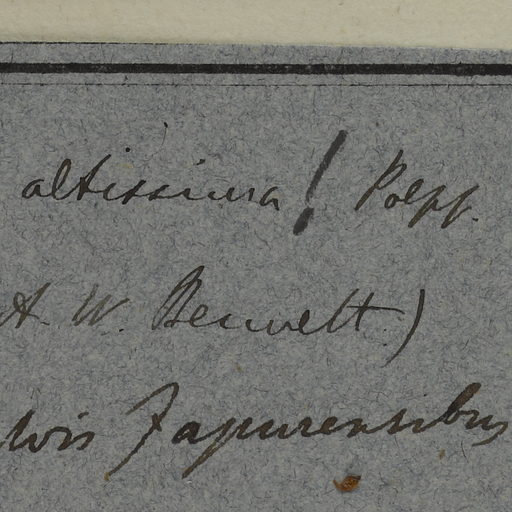 altissima! Poepp.
A. W. Bennett.)
lvis Japurensibus